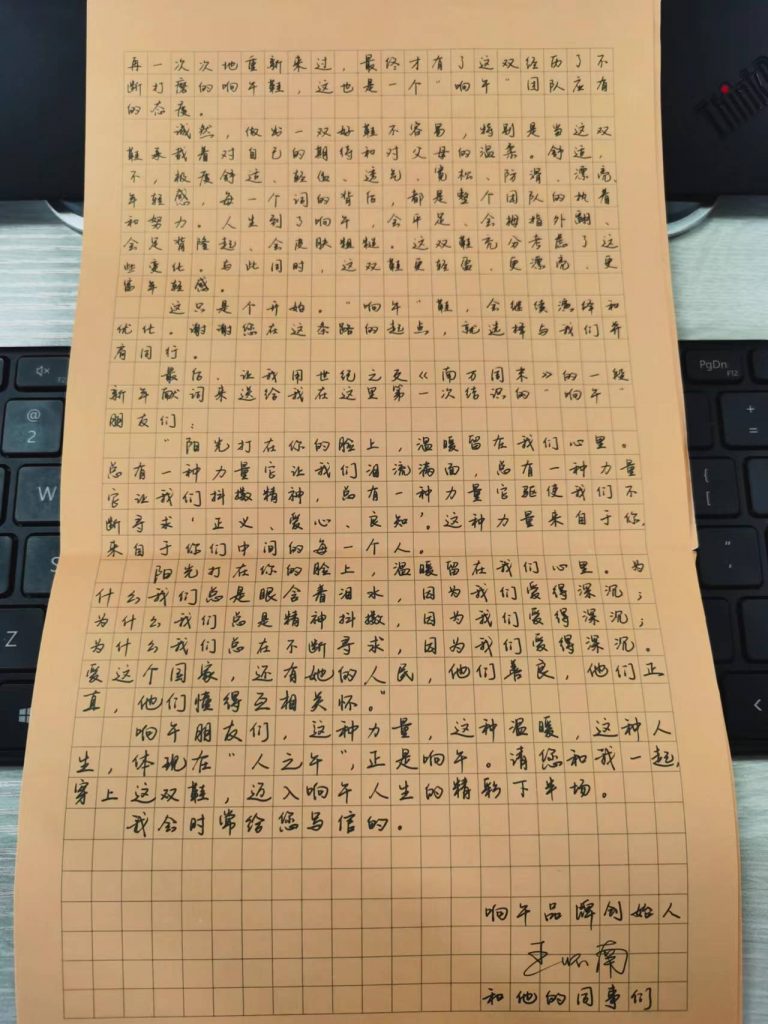 再一次次地重新来过，最终才有了这双经历了不
断打磨的响午鞋，这也是一个“响午”团队应有
的态度。
诚然，做好一双好鞋不容易，特别是当这双
鞋承载着对自己的期待和对父母的温柔。舒适，
不，极度舒适、轻便、透气、宽松、防滑、漂亮、
年轻感，每一个词的背后，都是整个团队的执着
和努力。人生到了响午，会平足、会拇指外翻、
会足背隆起、会皮肤粗糙。这双鞋充分考虑了这
些变化。与此同时，这双鞋更轻盈、更漂亮、更
富年轻感。
这只是个开始。“响午”鞋，会继续演绎和
优化。谢谢您在这条路的起点，就选择与我们并
肩同行。
最后，让我用世纪之交《南方周末》的一段
新年献词来送给我在这里第一次结识的“响午”
朋友们：
“阳光打在你的脸上，温暖留在我们心里。
总有一种力量它让我们泪流满面，总有一种力量
它让我们抖擞精神，总有一种力量它驱使我们不
断寻求‘正义、爱心、良知’。这种力量来自于你，
来自于你们中间的每一个人。
阳光打在你的脸上，温暖留在我们心里。为
什么我们总是眼含着泪水，因为我们爱得深沉；
为什么我们总是精神抖擞，因为我们爱得深沉；
为什么我们总在不断寻求，因为我们爱得深沉。
爱这个国家，还有她的人民，他们善良，他们正
直，他们懂得互相关怀。”
响午朋友们，这种力量，这种温暖，这种人
生，体现在“人之午”，正是响午。请您和我一起，
穿上这双鞋，迈入响午人生的精彩下半场。
我会时常给您写信的。
响午品牌创始人
王怀南
和他的同事们
ThinkP
PgDn
F12
F2
@
2
W
Z
+
=
{
[